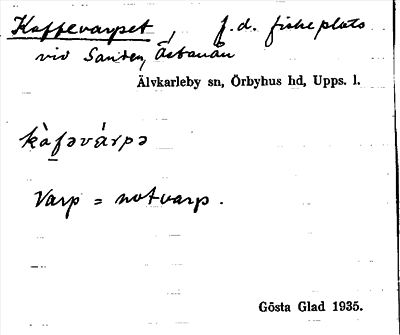 Kaffevarpet, f.d. fiskeplats
vid Sanden, Östanån
Älvkarleby sn, Örbyhus hd, Upps. l.
kàfəvárpə
Varp = notvarp.
Gösta Glad 1935.